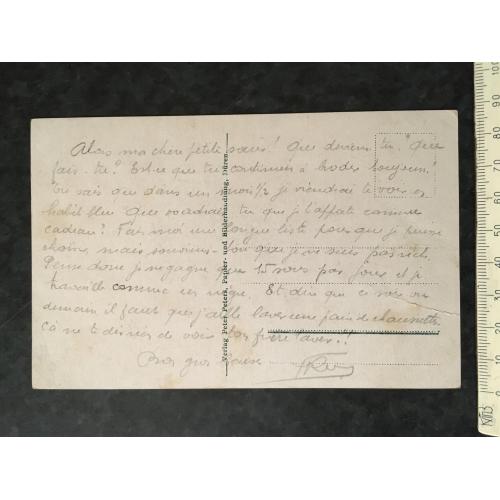 Alors ma chère petite sœur! Que deviens-tu? Que
fais-tu? Est-ce que tu continues à broder toujours!
Tu sais que dans un mois 1/2 je viendrai te voir en
habit bleu. Que voudrais-tu que je t'apporte comme
cadeau? Fais moi une longue liste pour que je puisse
choisir, mais souviens-toi que je ne suis pas riche.
Pense donc je ne gagne que 15 sous par jour et je
travaille comme un nègre. Et dire que ce soir ou
demain il faut que j'aille laver une paire de chaussettes
ça ne te dirait de voir ton frère laver!!
Bon gros baiser
Verlag Peter Peters, Papier- und Bilderhandlung, Düren